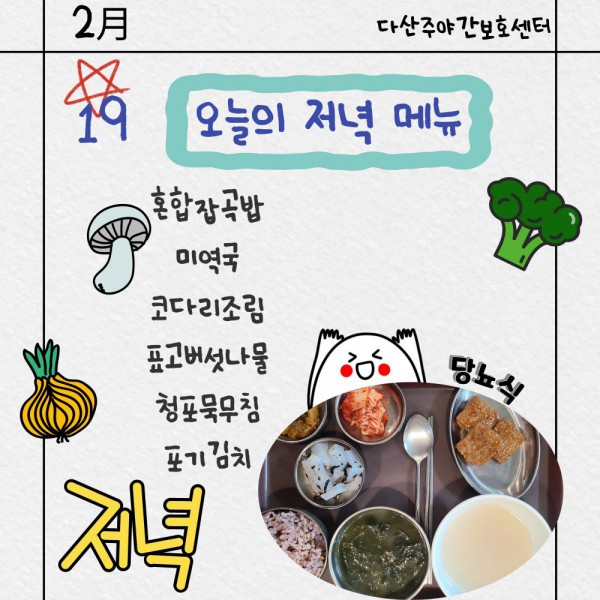 2月
다산주야간보호센터
19
오늘의 저녁 메뉴
혼합잡곡밥
미역국
코다리조림
표고버섯나물
청포묵무침
포기김치
당뇨식
저녁